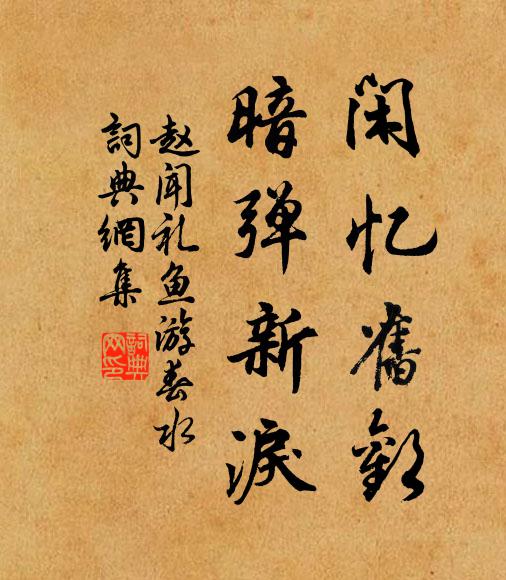 闲忆舊歡
暗弹新淚
赵闻礼鱼游春水
詞典網集
詞典网印